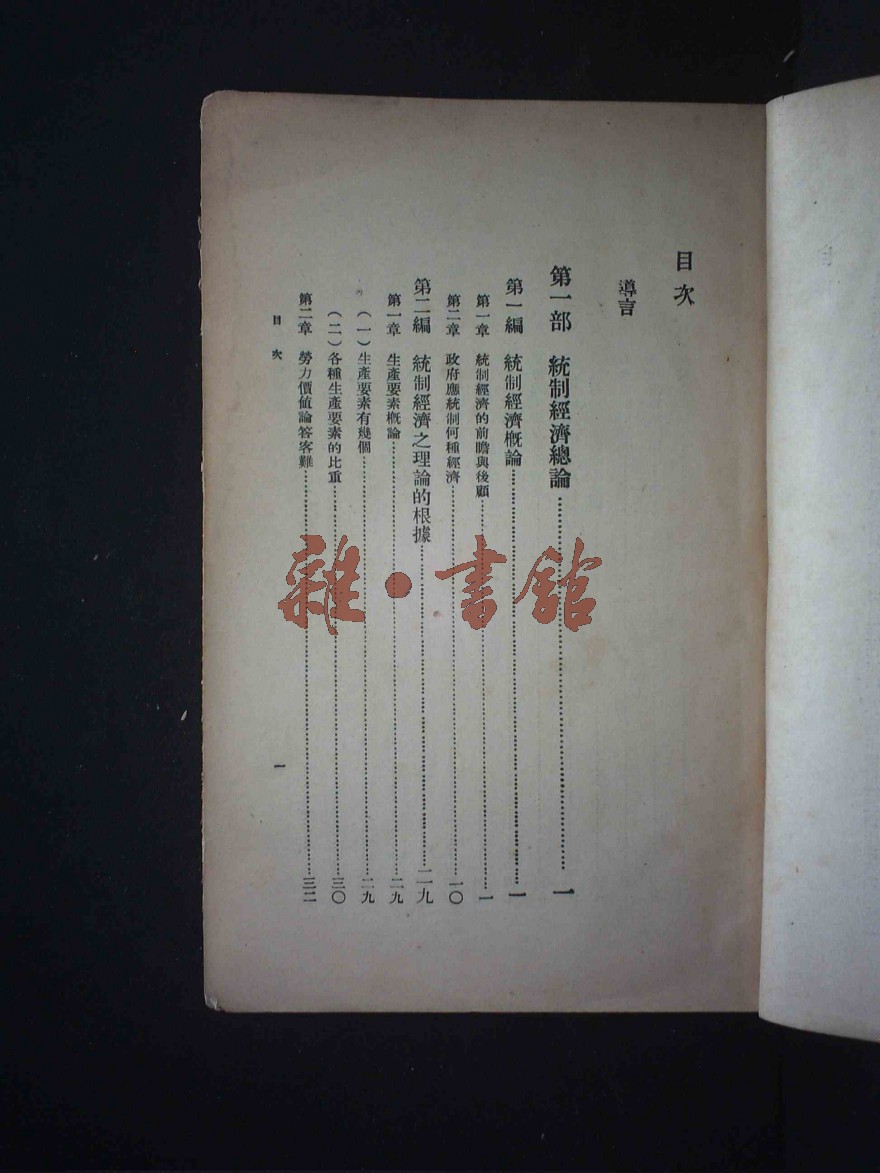 目次
導言
第一部　統制經濟總論……一
第一編　統制經濟概論……一
第一章　統制經濟的前瞻與後顧……一
第二章　政府應統制何種經濟……一〇
第二編　統制經濟之理論的根據……二九
第一章　生產要素概論……二九
（一）生產要素有幾個……二九
（二）各種生產要素的比重……三〇
第二章　勞力價値論答客難……三二
目次
一
雜・書館